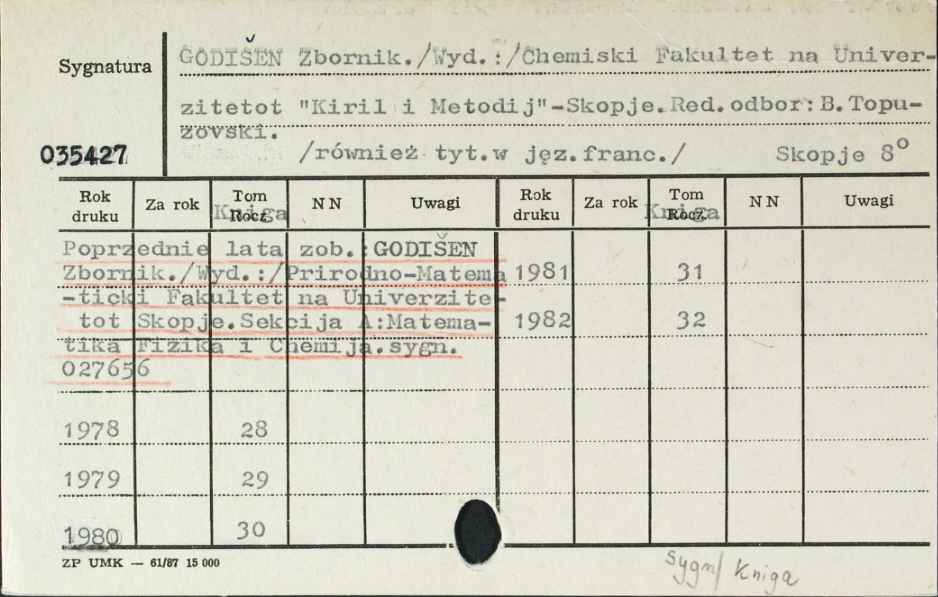 Sygnatura
035427
GODIŠEN Zbornik./Wyd.:/Chemiski Fakultet na Univer-
zitetot "Kiril i Metodij"-Skopje.Red.odbor:B.Topu-
zovski.
/również tyt.w jęz.franc./ Skopje 8°
Rok druku Za rok Tom Rocz. Kniga NN Uwagi Rok druku Za rok Tom Rocz. Kniga NN Uwagi
Poprzednie lata zob.:GODIŠEN
Zbornik./Wyd.:/Prirodno-Matema 1981 31
-ticki Fakultet na Univerzite-
tot Skopje.Sekcija A:Matema- 1982 32
tika Fizika i Chemija.sygn.
027656
1978 28
1979 29
1980 30
ZP UMK — 61/87 15 000
sygn/ Kniga